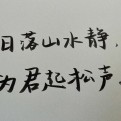 日落山水静，
为君起松声